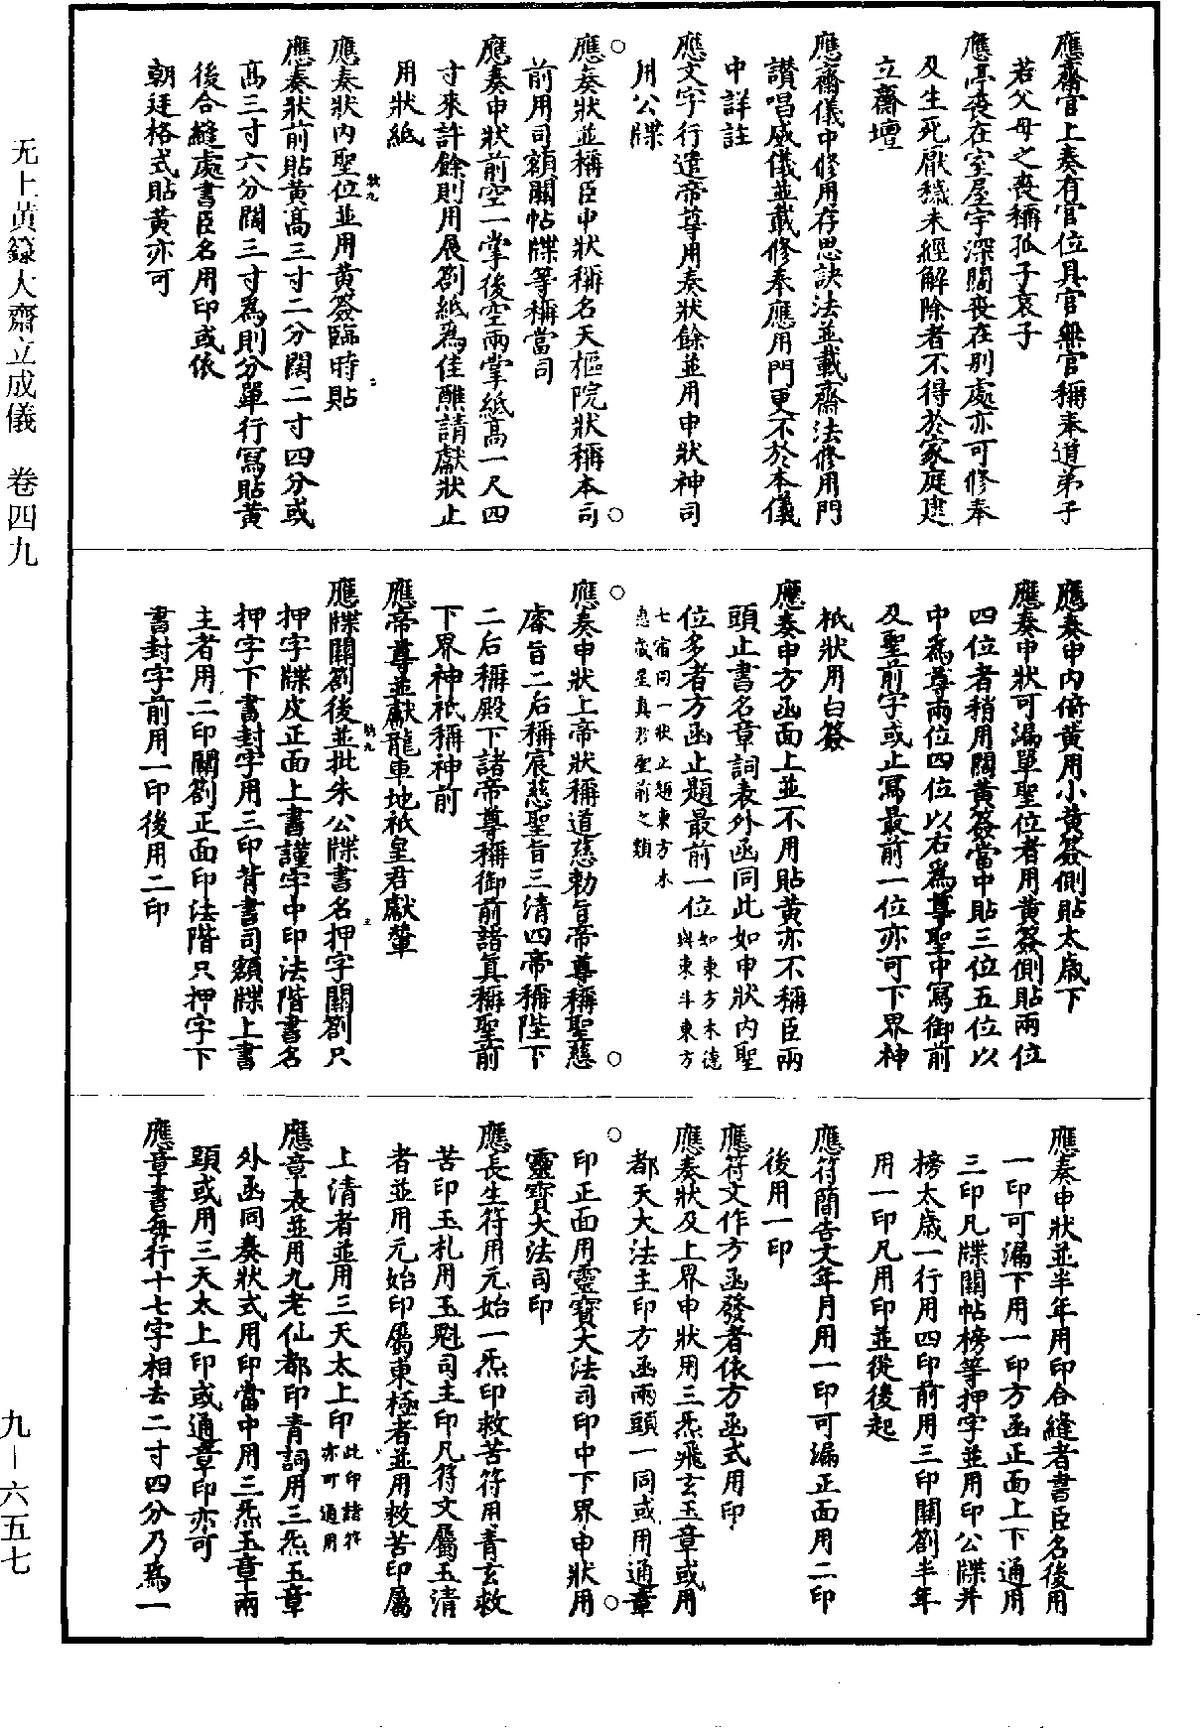 應齋官上奏有官位具官無官稱奉道弟子
若父母之喪稱孤子哀子
應亭喪在室屋宇深闊喪在別處亦可修奉
及生死厭穢未經解除者不得於家庭建
立齋壇
應齋儀中修用存思訣法並載齋法修用門
讃唱威儀並載修奉應用門更不於本儀
中詳註
應文字行遣帝尊用奏狀餘並用申狀神司
用公牒
應奏狀並稱臣申狀稱名天樞院狀稱本司
前用司額關帖牒等稱當司
應奏申狀前空一掌後空兩掌紙高一尺四
寸來許餘則用展劄紙為佳醮請獻狀止
用狀紙
應奏狀內聖位並用黃簽臨時貼
應奏狀前貼黃高三寸二分闊二寸四分或
高三寸六分闊三寸為則分單行寫貼黃
後合縫處書臣名用印或依
朝廷格式貼黃亦可
應奏申內俯黃用小黃簽側貼太歲下
應奏申狀可漏單聖位者用黃簽側貼兩位
四位者稍用闊黃簽當中貼三位五位以
中為尊兩位四位以右為尊聖中寫御前
及聖前字或止寫最前一位亦可下界神
祇狀用白簽
應奏申方函面上並不用貼黃亦不稱臣兩
頭止書名章詞表外函同此如申狀內聖
位多者方函止題最前一位如東方木德與東斗東方
七宿同一狀止題東方木德歲星真君聖前之類
應奏申狀上帝狀稱道慈勅旨帝尊稱聖慈
睿旨二后稱宸慈聖旨三清四帝稱陛下
二后稱殿下諸帝尊稱御前諸真稱聖前
下界神祇稱神前
應帝尊並獻龍車地祇皇君獻輦
應牒關劄後並批朱公牒書名押字關劄只
押字牒皮正面上書謹字中印法階書名
押字下書封字用三印背書司額牒上書
主者用二印關劄正面印法階只押字下
書封字前用一印後用二印
應奏申狀並半年用印合縫者書臣名後用
一印可漏下用一印方函正面上下通用
三印凡牒關帖榜等押字並用印公牒并
榜太歲一行用四印前用三印關劄半年
用一印凡用印並從後起
應符簡告文年月用一印可漏正面用二印
後用一印
應符文作方函發者依方函式用印
應奏狀及上界申狀用三炁飛玄玉章或用
都天大法主印方函兩頭一同或用通章
印正面用靈寶大法司印中下界申狀用
靈寶大法司印
應長生符用元始一炁印救苦符用青玄救
苦印玉札用玉魁司主印凡符文屬玉清
者並用元始印屬東極者並用救苦印屬
上清者並用三天太上印此印諸符亦可通用
應章表並用九老仙都印青詞用三炁玉章
外函同奏狀式用印當中用三炁玉章兩
頭或用三天太上印或通章印亦可
應章書每行十七字相去二寸四分乃為一
无上黃籙大齋立成儀　卷四九
九—六五七